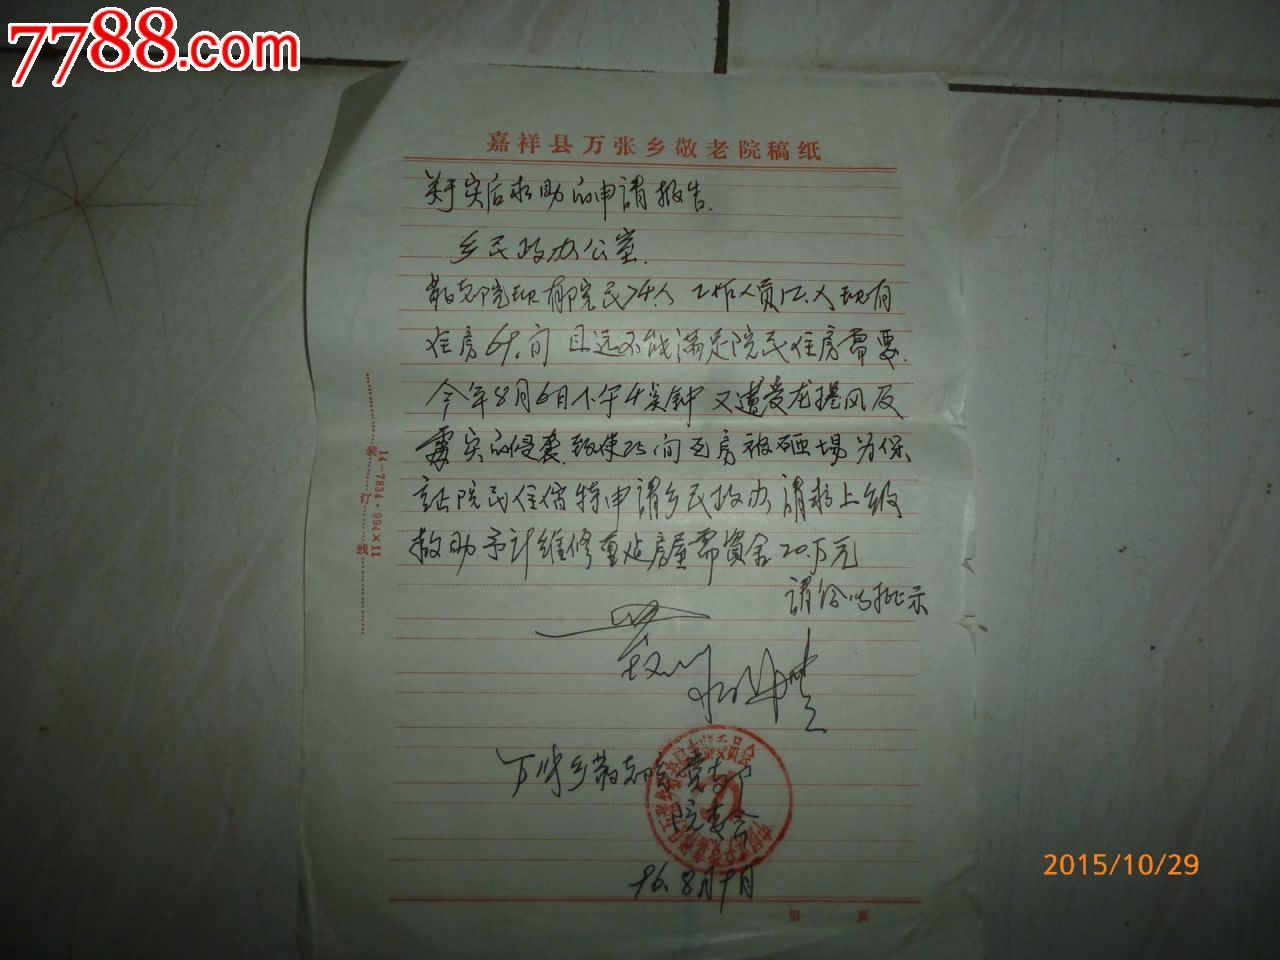 7788.com
嘉祥县万张乡敬老院稿纸
关于灾后求助的申请报告.
乡民政办公室.
敬老院现有院民74人 工作人员12人现有
住房69间 且远不能满足院民住房需要.
今年8月6日下午4点钟 又遭受龙捲风及
雹灾的侵袭.致使25间瓦房被砸塌为保
证院民住宿特申请乡民政办 请求上级
救助予计维修重建房屋需资金20.万元
请给以批示
万张乡敬老院党支部
院委会
96.8月9日
第 页
14-7834·994×11
装订线
2015/10/29